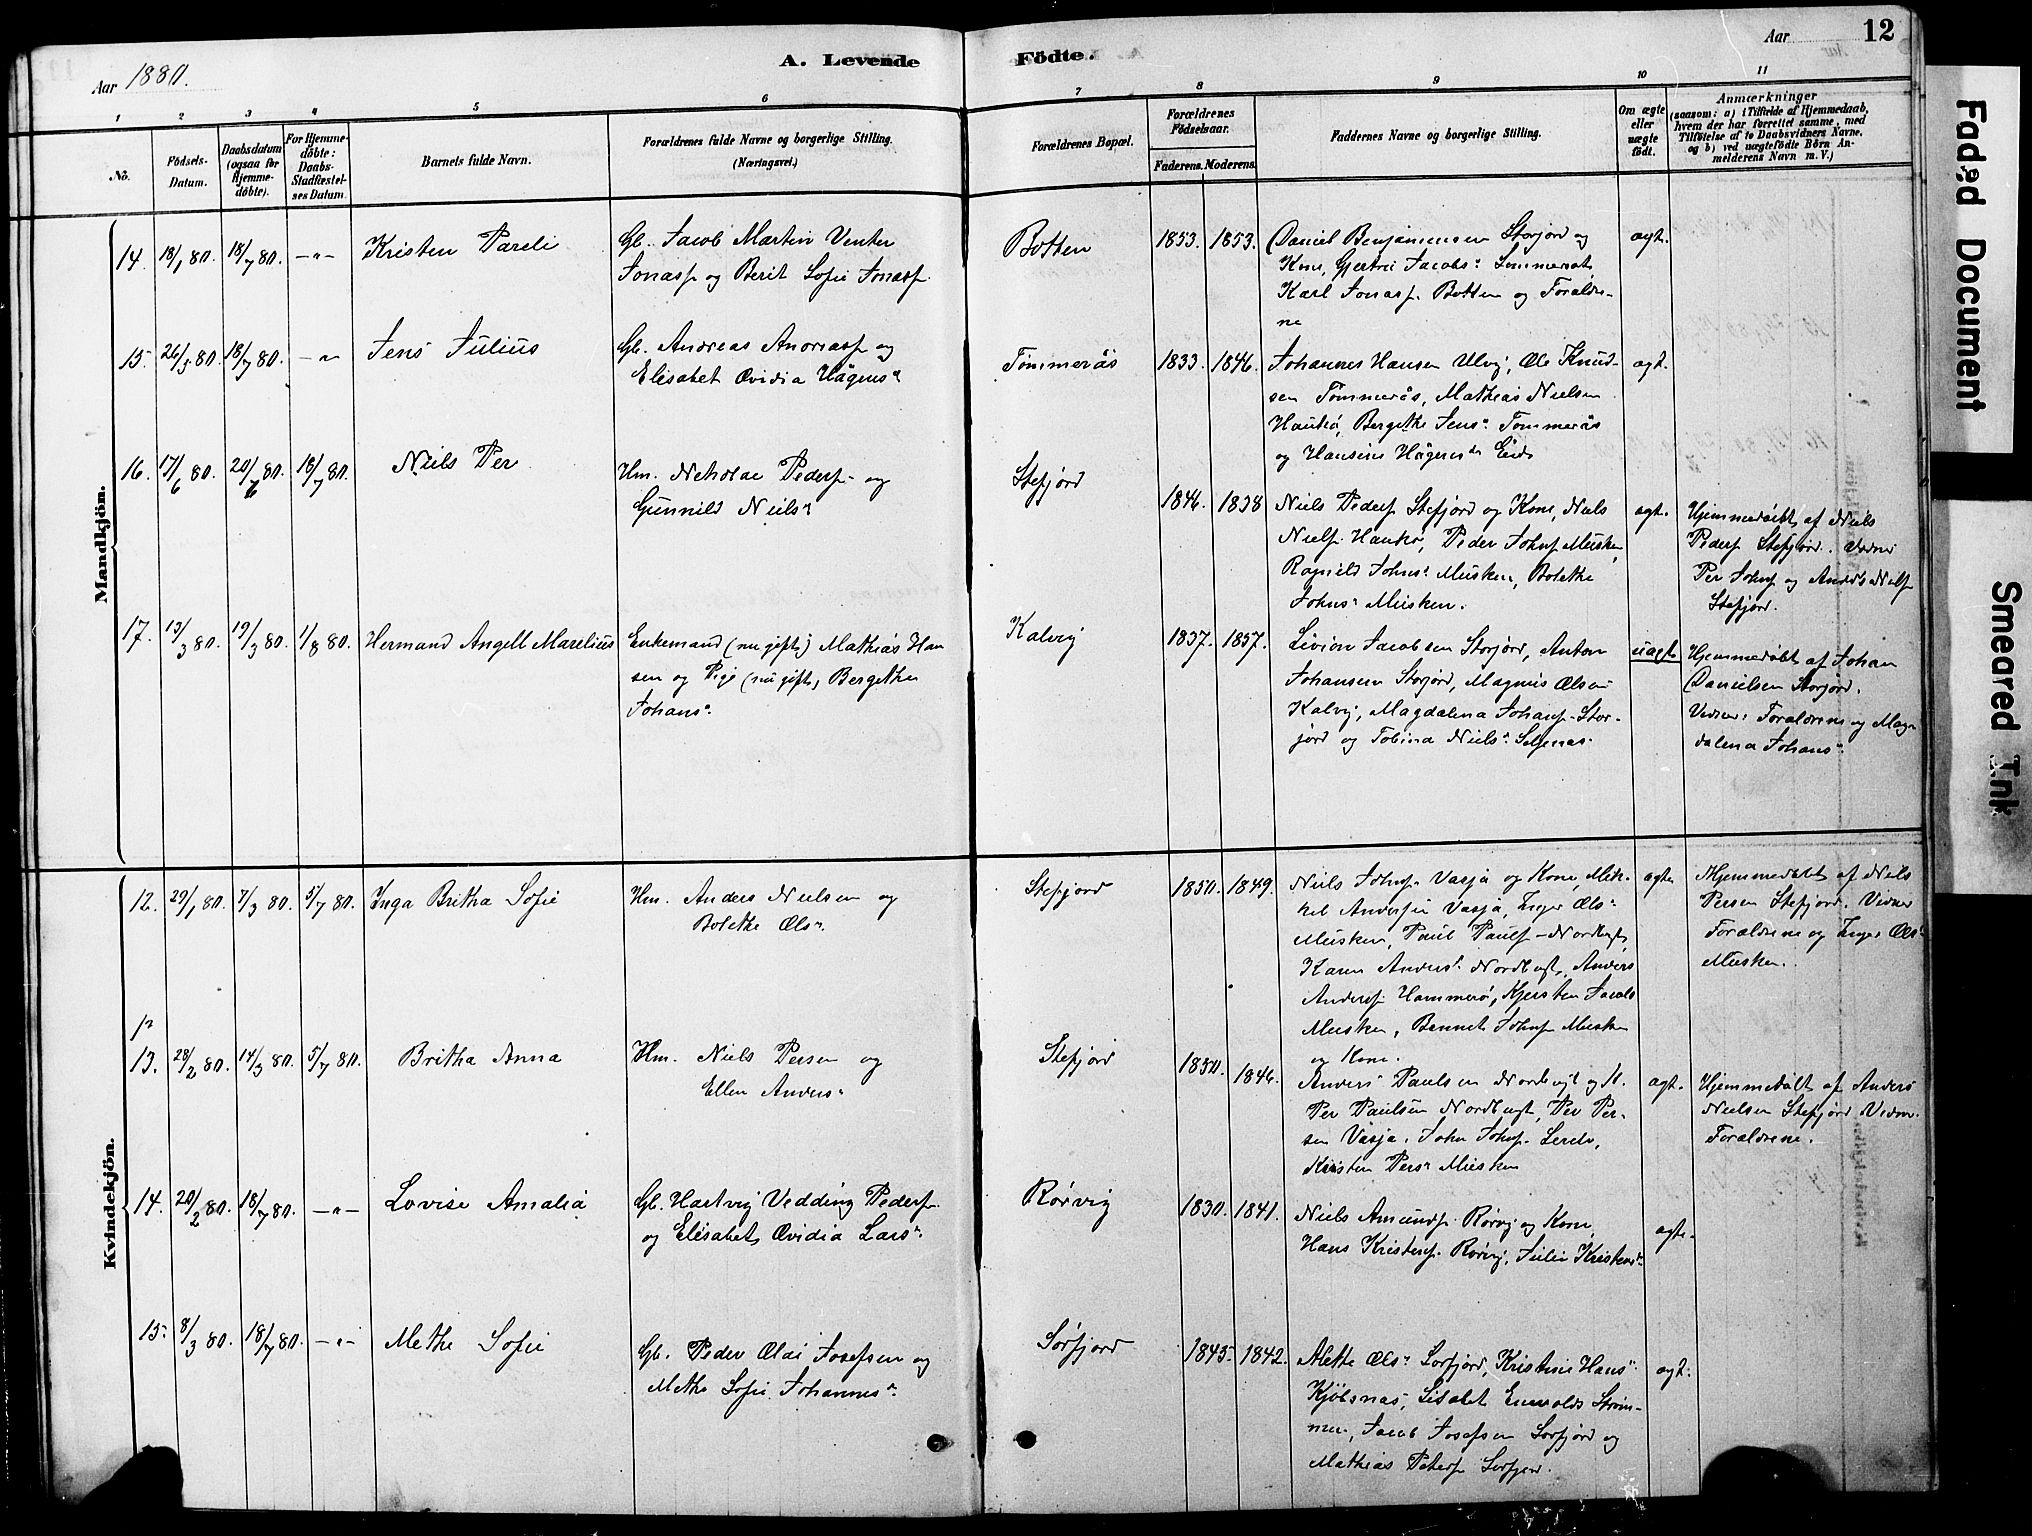 Aar 1880.
A. Levende
Födte.
Aar
12
1
2
3
4
5
6
7
8
9
10
11
No.
Födsels-
Datum.
Daabsdatum
(ogsaa for
Hjemme-
döbte).
For Hjemme-
döbte:
Daabs-
Stadfæstel-
ses Datum.
Barnets fulde Navn.
Forældrenes fulde Navne og borgerlige Stilling.
(Næringsvei.)
Forældrenes Bopæl.
Forældrenes
Födselsaar.
Faderens. Moderens.
Faddernes Navne og borgerlige Stilling.
Om ægte
eller
uægte
födt.
Anmærkninger
(saasom: a) i Tilfælde af Hjemmedaab,
hvem der har forrettet samme, med
Tilföielse af to Daabsvidners Navne,
og b) ved uægtefödte Börn An-
melderens Navn m. V.)
Mandkjön.
14. 18/1 80. 18/7 80. -"- Kristen Pareli
Gb. Jacob Martin Venter
Jonass. og Berit Sofie Jonass.
Botten
1853. 1853.
Daniel Benjaminsen Storjord og
Kone, Gjertru Jacobs: Sommerset,
Karl Jonass. Botten og Foraldre-
ne
agt.
15. 26/5 80. 18/7 80. -"- Jens Julius
Gb. Andreas Andreass. og
Elisabet Ovidia Hågens"
Tømmerås
1833. 1846.
Johannes Hansen Ulvig, Ole Knud-
sen Tømmerås, Mathias Nielsen
Haukø, Bergethe Jens" Tømmerås
og Hansine Hågens" Eide
agt.
16. 17/6 80. 20/6 80. 18/7 80. Niels Per
Hm. Nicholai Peders. og
Gunnild Niels"
Stefjord
1846. 1838
Niels Peders. Stefjord og Kone, Niels
Niels. Haukø, Peder Johns. Musken,
Ragnild Johns" Musken, Bolethe
Johns" Musken.
agt.
Hjemmedøbt af Niels
Peders. Stefjord. Vidner
Per Johns. og Anders Niels.
Stefjord.
17. 13/3 80. 19/3 80. 1/8 80. Hermand Angell Marelius
Enkemand (nu gift) Mathias Han
sen og Pige (nu gift) Bergethe
Johans".
Kalvig
1837. 1857.
Livion Jacobsen Storjord, Anton
Johansen Storjord, Magnus Olsen
Kalvig, Magdalena Johans. Stor-
jord og Tobina Niels" Seljenas.
uagt.
Hjemmedøbt af Johan
Danielsen Storjord.
Vidner: Foraldrene og Mag-
dalena Johans"
Kvindekjön.
12. 29/1 80. 7/3 80. 5/7 80. Inga Britha Sofie
Hm. Anders Nielsen og
Bolethe Ols".
Stefjord
1850. 1849.
Niels Johns. Vasja og Kone, Mik-
kel Andersen Vasja, Inger Ols"
Musken, Paul Pauls. Nordbugt,
Karen Anders" Nordbugt, Anders
Anders. Hammerø, Kjersten Jacobs
Musken, Bennet Johns. Musken
og Kone.
agte
Hjemmedøbt af Niels
Persen Stefjord. Vidner
Foraldrene og Inger Ols"
Musken.
12
13. 28/2 80. 14/3 80. 5/7 80. Britha Anna
Hm. Niels Persen og
Ellen Anders"
Stefjord
1850. 1846.
Anders Paulsen Nordbugt og K.
Per Paulsen Nordbugt, Per Per-
sen Vasja, John Johns.
Kristen Pers" Musken
agt.
Hjemmedøbt af Anders
Nielsen Stefjord Vidn.
Foraldrene.
14. 20/2 80. 18/7 80. -"- Lovise Amalia
Gb. Hartvig Vedding Peders.
og Elisabet Ovidia Lars".
Rørvig
1830. 1841.
Niels Amunds. Rørvig og Kone,
Hans Kristens. Rørvig, Julie Kristens"
agte.
15. 8/3 80. 18/7 80. -"- Methe Sofie
Gb. Peder Oldi Josefsen og
Methe Sofie Johannes".
Sørfjord
1845. 1842.
Alette Ols" Sørfjord, Kristine Hans"
Kjøbsnas, Lisabet Enevolds Strøm-
mer, Jacob Josefsen Sørfjord og
Mathias Peters. Sørfjord.
agt.
Faded Document
Smeared Ink